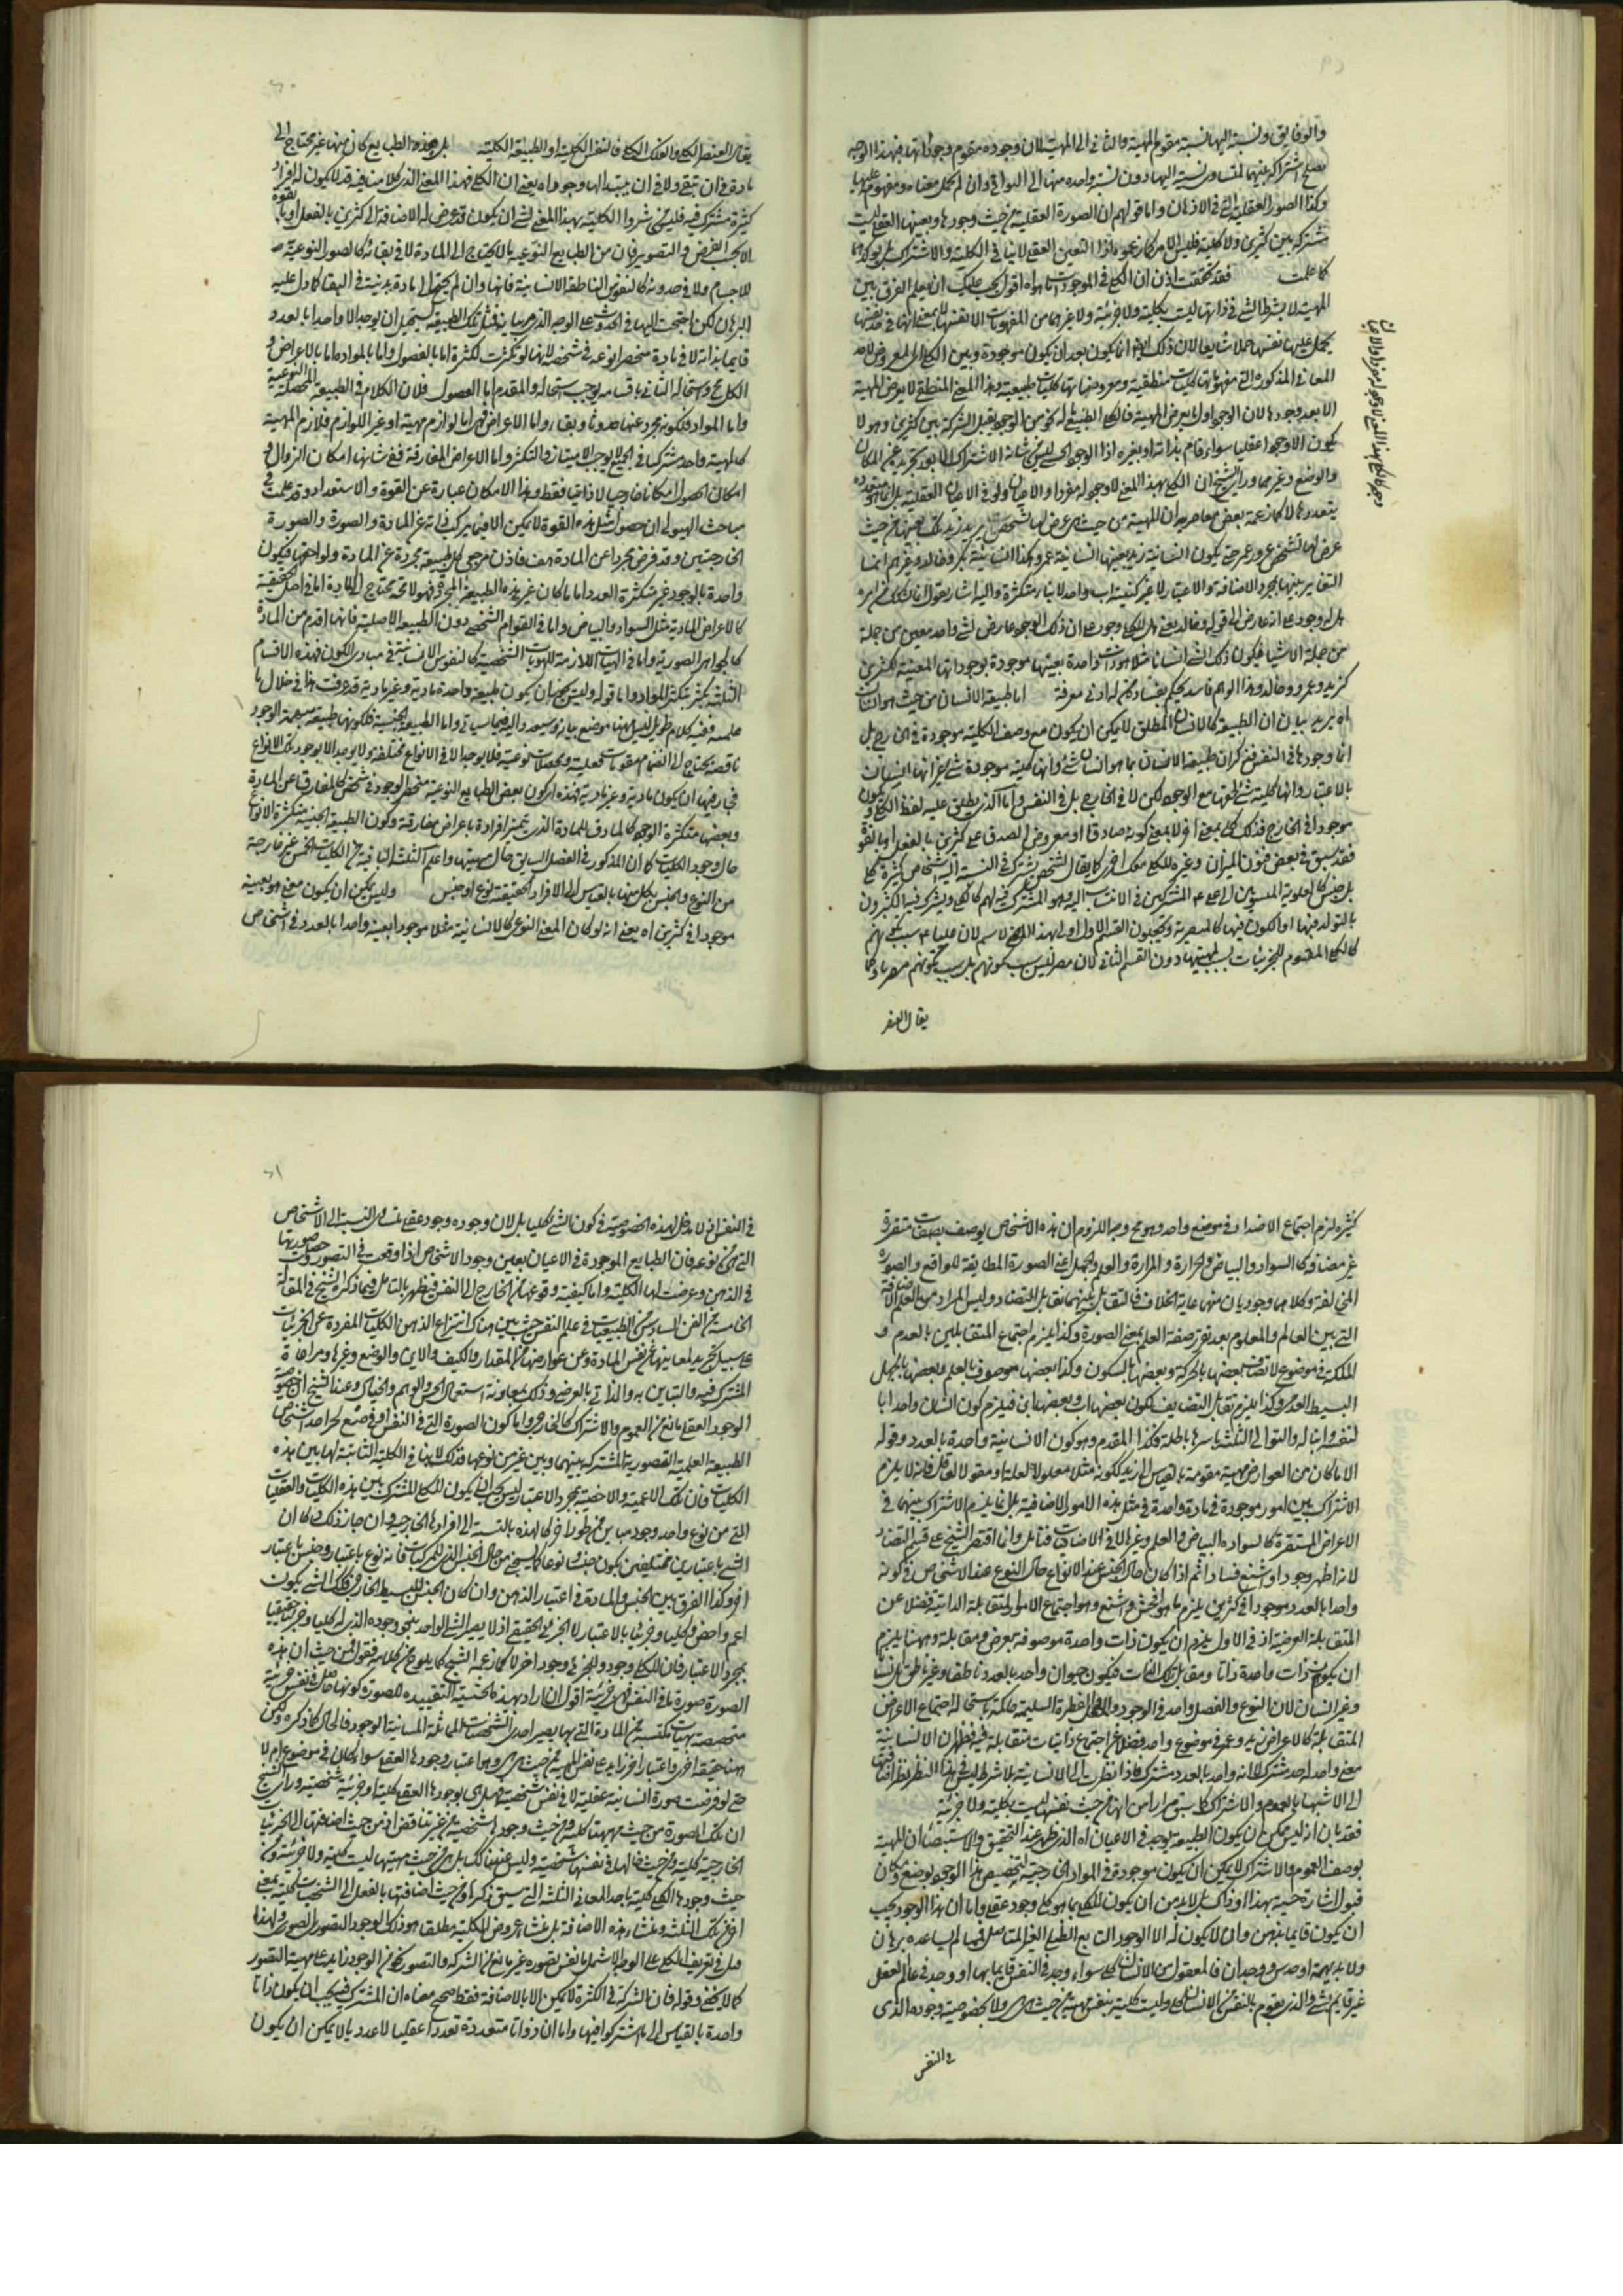 والوفا يق ونسبة اليها نسبة مقوم المهية والثانى الى المهية لان وجوده مقوم وجوداتها فبهذا الوجه
يصلح اشتراكه عنهما لتساوى نسبة اليها دون نسبة واحد منها الى البواقى وان الحمل معناه ومفهومه عليها
وكذا الصور العقلية التى فى الاذهان واما قولهم ان الصورة العقلية من حيث وجودها وبعينها العقلى ليست
مشتركة بين كثيرين ولا كلية فليس الامر كما زعموه اذ التعين العقلى لا ينافى الكلية والاشتراك بل يؤكدهما
كما علمت فقد تحققت اذن ان الكلى فى الموجودات ما هو اه اقول يجب عليك ان تعلم الفرق بين
المهية لا بشرط شئ فى ذاتها ليست بكلية ولا جزئية ولا غيرهما من المفهومات الا نفسها
المعانى المذكورة التى مفهوماتها كليات منطقية ومعروضاتها كليات طبيعية وهذا المعنى المنطقى لا يعرض المهية
الا بعد وجودها لان الوجود اولا يعرض المهية فالكلى الطبيعى ما له نحو من الوجود يقبل الشركة بين كثيرين وهو لا
يكون الا وجودا عقليا سواء قام بذاته او بغيره اذ الوجود الحسى ليس من شانه الاشتراك الا بعد تجريده عن المكان
والوضع وغيرهما وراى الشيخ ان الكلى بهذا المعنى لا وجود له مفردا
يتعددها لا كما زعمه بعض معاصريه ان المهية من حيث هى عرض لها تشخص زيد
عرض لها تشخص عمرو
التغاير بينها بمجرد الاضافة والاعتبار لا غير كنسبة اب واحد لابناء متكثرة واليه اشار بقوله
هل له وجود على انه عارض الى قوله وخالد يعنى هل للكلى وجود على ان ذلك الوجود عارض لشئ واحد معين من جملة
من جملة الاشياء فيكون ذلك الشئ انسانا مثلا هو ذات واحدة بعينها موجودة بوجوداتها المعينة لكثيرين
كزيد وعمرو وخالد وهذا الوهم فاسد يحكم بفساده كل من له ادنى معرفة اما طبيعة الانسان من حيث هو انسان
اه يريد بيان ان الطبيعة كالانسان المطلق لا يمكن ان يكون مع وصف الكلية موجودة فى الخارج بل
انما وجودها فى النفس فذكر ان طبيعة الانسان بما هو انسان شئ وانها كلية موجودة شئ غير انها انسان
بالاعتبار وانها كلية شئ لحقها مع الوجود لكن لا فى الخارج بل فى النفس واما الذى يطلق عليه لفظ الكلى ويكون
موجودا فى الخارج فذلك كلى بمعنى آخر لا بمعنى كونه صادقا او معروض الصدق على كثيرين بالفعل او بالقوة
فقد سبق فى بعض فنون الميزان وغيره للكلى معنى آخر كما يقال لشخص يشترك فى النسبة اليه اشخاص كثيرة كلى
بل جنس كالعلوية المنسوبين الى على ع المشتركين فى الانتساب اليه وهو المشترك فيه لهم كالكلى ويشترك فيه الكثيرون
بالتولد منها او الكون فيها كالمصرية ويجعلون القسم الاول اولى بهذا الاسم لان عليا ع سبب تكونهم
كالكلى المقوم للجزئيات لسبب مهيتها دون القسم الثانى لان مصر ليس سبب كونهم بل سبب كونهم مصريا وكما
يقال العنصر
يقال العنصر الكلى والفلك الكلى والنفس الكلية او الطبيعة الكلية بل هذه الطبايع كان منها غير محتاج الى
مادة فى ان تبقى ولا فى ان يبتدى لها وجود اه يعنى ان الكلى بهذا المعنى الذى كلامنا فيه قد لا يكون له افراد
كثيرة مشترك فيه فليس من شروط الكلية بهذا المعنى لشئ ان يكون قد عرض له الاضافة الى كثيرين بالفعل او بالقوة
الا بحسب الفرض والتصوير فان من الطبايع النوعية ما لا يحتاج الى المادة لا فى بقائه كالصور النوعية
للاجسام ولا فى حدوثه كالنفوس الناطقة الانسانية فانها وان لم يحتج الى مادة بدنية فى البقاء كما دل عليه
البرهان لكن احتاجت اليها فى الحدوث على الوجه الذى مر بيانه فمثل تلك الطبيعة يستحيل ان يوجد الا واحدا بالعدد
قايما بذاته لا فى مادة منحصرا نوعه فى شخصه لانها لو تكثرت لكثرة اما بالفصول واما بالمواد واما بالاعراض و
الكل مح واستحالة التالى باقسامه يوجب استحالة المقدم اما الفصول فلان الكلام فى الطبيعة المحصلة النوعية
واما المواد فلكونه مجرد عنها حدوثا وبقاء واما الاعراض فهى اما لوازم مهية او غير اللوازم فلازم المهية
كالمهية واحد مشترك فى الجميع لا يوجب الامتياز والتكثر واما الاعراض المفارقة ففى شانها امكان الزوال و
امكان الحصول امكانا خارجيا لا ذاتيا فقط وهذا الامكان عبارة عن القوة والاستعداد وقد علمت فى
مباحث الهيولى ان حصول مثل هذه القوة لا يمكن الا فيما يتركب ذاته عن المادة والصورة
الخارجيتين وقد فرض مجردا عن المادة هف فاذن من حق كل طبيعة مجردة عن المادة ولواحقها فيكون
واحدة بالوجود غير متكثرة العدد واما ما كان غير هذه الطبيعة المجردة فهو لا محة محتاج الى المادة اما فى اصل الحقيقة
كالاعراض المادية مثل السواد والبياض واما فى القوام الشخصى دون الطبيعة الاصلية فانها اقدم من المادة
كالجواهر الصورية واما فى الهيات اللازمة للهويات الشخصية كالنفوس الانسانية فى مبادى الكون فهذه الاقسام
الثلثة يتكثر بتكثر المواد واما قوله وليس يجب ان يكون طبيعة واحدة مادية وغير مادية قد عرفت هذا فى خلال ما
علمت ففيه كلام طويل ليس ههنا موضع بيانه وسيعود اليه فيما سياتى واما الطبيعة الجنسية فلكونها طبيعة مبهمة الوجود
ناقصة يحتاج الى انضمام مقومات فعلية ومحصلات نوعية فلا يوجد الا فى الانواع مختلفة ولا يوجد الا بوجود تلك الانواع
فى افرادها ان يكون مادية وغير مادية فهذه كون بعض الطبايع النوعية منحصر الوجود فى شخص كالمفارقات عن المادة
وبعضها متكثرة الوجود كالمادى للمادة الذى يتميز افراده باعراض مفارقة وكون الطبيعة الجنسية متكثرة الانواع
حال وجود الكليات كما ان المذكور فى الفصل السابق حال مهيتها واعلم ان الثلث الباقية من الكليات الخمس غير خارجة
من النوع والجنس بكل منهما بالقياس الى الافراد الحقيقية نوع او جنس وليس يمكن ان يكون معنى هو بعينه
موجودا فى كثيرين اه يعنى انه لو كان المعنى النوعى كالانسانية مثلا موجودا بعينه واحدا بالعدد فى اشخاص
كثيرة لزم اجتماع الاضداد فى موضع واحد وهو مح وجه اللزوم ان هذه الاشخاص يوصف بصفات متفرقة
غير مضافة كالسواد والبياض والحرارة والمرارة والعلم والجهل اعنى الصورة المطابقة للواقع والصورة
المخالفة وكلاهما وجوديان بينهما غاية الخلاف فالتقابل بينهما تقابل التضاد وليس المراد من العلم الاضافة
التى بين العالم والمعلوم بعد تقرر صفة العلم بمعنى الصورة وكذا يلزم اجتماع المتقابلين بالعدم و
الملكة فى موضوع لاتصاف بعضها بالحركة وبعضها بالسكون وكذا بعضها موصوف بالعلم وبعضها بالجهل
البسيط العدمى وكذا يلزم تقابل التضايف لكون بعضها اب وبعضها ابن فيلزم كون انسان واحد ابا
لنفسه وابنا له والتوالى الثلثة باسرها باطلة وكذا المقدم وهو كون الانسانية واحدة بالعدد وقوله
الا ما كان من العوارض مهية مقومة بالقياس الى زيد ككونه مثلا معلولا لعلة او معقولا لعاقل فانه لا يلزم
الاشتراك بين امور موجودة فى مادة واحدة فى مثل هذه الامور الاضافية بل انما يلزم الاشتراك بينهما فى
الاعراض المستقرة كالسواد والبياض والعلم وغيرها لا فى الاضافيات فتامل وانما اقتصر الشيخ على قسم التضاد
لانه اظهر وجودا واشنع فسادا ثم اذا كان حال الجنس عند الانواع حال النوع عند الاشخاص فى كونه
واحدا بالعدد موجودا فى كثيرين يلزم ما هو افحش واشنع وهو اجتماع الامور المتقابلة الذاتية فضلا عن
المتقابلة العرضية اذ فى الاول يلزم ان يكون ذات واحدة موصوفة بعرض ومقابله وههنا يلزم
ان يكون ذات واحدة ذاتا ومقابل تلك الذات فيكون حيوان واحد بالعدد ناطقا وغير ناطق انسانا
وغير انسان لان النوع والفصل واحد فى الوجود والفطرة السليمة حاكمة باستحالة اجتماع الاعراض
المتقابلة كالاعراض زيد وعمرو فى موضوع واحد فضلا عن اجتماع ذاتيات متقابلة فيه فظهر ان الانسانية
معنى واحد له حد مشترك لا انه واحد بالعدد مشترك فاذا نظرت الى الانسانية بلا شرط
الى الاشبهها بالعموم والاشتراك كما سبق مرارا من انها من حيث نفسها ليست بكلية ولا جزئية
فقد بان انه ليس يمكن ان يكون الطبيعة يوجد فى الاعيان اه الذى ظهر عند التحقيق والاستبصار ان المهية
بوصف العموم والاشتراك لا يمكن ان يكون موجودة فى المواد الخارجية لتخصيص هذا الوجود بوضع ومكان
قبول اشارة حسية بهذا او ذاك بل لا بد من ان يكون للكلى بما هو كلى وجود عقلى واما ان هذا الوجود يجب
ان يكون قايما بذهن وان لا يكون له الا الوجود التابع الظلى الغير المتاصل فمما لم يساعده برهان
ولا بديهة او حدس ووجدان فالمعقول من الانسان كلى سواء وجد فى النفس قايما بها او وجد فى عالم العقل
غير قايم بشئ والذى يقوم بالنفس من الانسان كلى وليست كليته بنفس مهيته من حيث هى هى ولا بخصوصية وجوده الذى
فى النفس
فى النفس اذ لا مدخل لهذه الخصوصية فى كون الشئ كليا بل لان وجوده وجود عقلى متساوى النسبة الى الاشخاص
التى من نوعه فان الطبايع الموجودة فى الاعيان بعين وجود الاشخاص اذا وقعت فى التصور وحصلت صورتها
فى الذهن وعرضت لها الكلية واما كيفية وقوعها من الخارج الى النفس فيظهر بالتامل فيما ذكره الشيخ فى المقالة
الخامسة من الفن السادس من الطبيعيات فى علم النفس حيث بين هناك انتزاع الذهن الكليات المفردة عن الجزئيات
على سبيل تجريد لمعانيها عن نفس المادة وعن عوارضها من المقدار والكيف والاين والوضع وغيرها ومراعاة
المشترك فيه والتباين به والذاتى بالعرضى وذلك بمعاونة استعمال الحس والوهم والخيال وعند الشيخ ان خصوصية
الوجود العقلى مانع من العموم والاشتراك كالخارجى واما كون الصورة التى فى النفس
الطبيعة العلمية التصورية المشتركة بينهما وبين غيره من نوعها فذلك لا ينافى الكلية الثابتة لها بين هذه
الكليات فان تلك الاعمية والاخصية بمجرد الاعتبار ليس يجب ان يكون للكلى المشترك بين هذه الكليات والعقليات
التى من نوع واحد وجود مباين من طور اخر كما لهذه بالنسبة الى افرادها الخارجية وان جاز ذلك كما ان
الشئ باعتبارين مختلفين يكون جنسا ونوعا كما سيجئ من حال الجنس الذى للمركبات فانه نوع باعتبار وجنس باعتبار
اخر وكذا الفرق بين الجنس والمادة فى اعتبار الذهن وان كان الجنس للبسيط الخارجى فكذلك الشئ يكون
اعم واخص وكليا وجزئيا بالاعتبار لا الجزئى الحقيقى اذ لا يصير الشئ الواحد بنحو وجوده الذى له كليا وجزئيا حقيقيا
بمجرد الاعتبار فان للكلى وجودا وللجزئى وجود اخر لا كما زعمه الشيخ كما يلوح من كلامه فقوله فمن حيث ان هذه
الصورة صورة ما فى النفس فهى جزئية اقول ان اراد بهذه الحيثية التقييدية للصورة كونها حاصلة فى نفس جزئية
متخصصة بهيات مكتسبة من المادة التى بها يصير احدى الشخصيات المماثلة المباينة الوجود فالحال كما ذكره ولكن
ههنا حقيقة اخرى واعتبار اخر زايد على نفس المهية من حيث هى هى وهو اعتبار وجودها العقلى سواء كان فى موضوع ام لا
حتى لو فرضت صورة انسانية عقلية لا فى نفس شخصية فهى بوجودها العقلى كلية او جزئية شخصية وراى الشيخ
ان تلك الصورة من حيث مهيتها كلية ومن حيث وجودها شخصية من غير تناقض اذ من حيث اضافتها الى الجزئيات
الخارجية كلية ومن حيث حالها فى نفسها شخصية وليس عندنا كذلك بل هى من حيث مهيتها ليست كلية ولا جزئية ومن
حيث وجودها العقلى كلية باحد المعانى الثلثة التى سبق ذكرها ومن حيث اضافتها بالفعل الى الشخصيات كلية بمعنى
اخر من تلك الثلثة ومنشاء هذه الاضافة بل منشاء عروض الكلية مطلقا هو ذلك الوجود التصورى الصورى ولهذا
كما لا يخفى وقوله فان الشركة فى الكثرة لا يمكن الا بالاضافة فقط صحيح معناه ان المشترك فيه يجب ان يكون ذاتا
واحدة بالقياس الى ما اشتركوا فيها واما ان ذواتا متعددة تعددا عقليا لا عدديا لا يمكن ان يكون